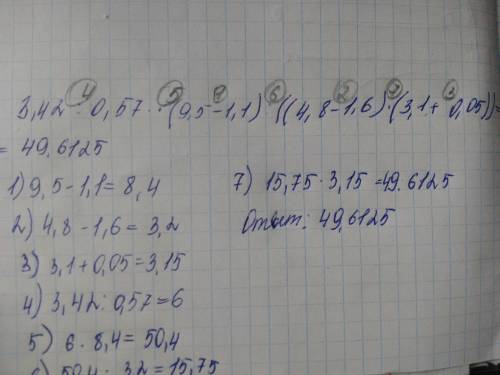 4 5 1 6 2 7 3
3,42 : 0,57 · (9,5-1,1) : ((4,8-1,6) · (3,1+0,05))=
= 49.6125
1) 9,5-1,1= 8,4
2) 4,8 -1,6= 3,2
3) 3,1+0,05=3,15
4) 3,42 : 0,57=6
5) 6 · 8,4= 50,4
6) 50,4 : 3,2 = 15,75
7) 15,75 · 3,15 =49.6125
Ответ: 49,6125